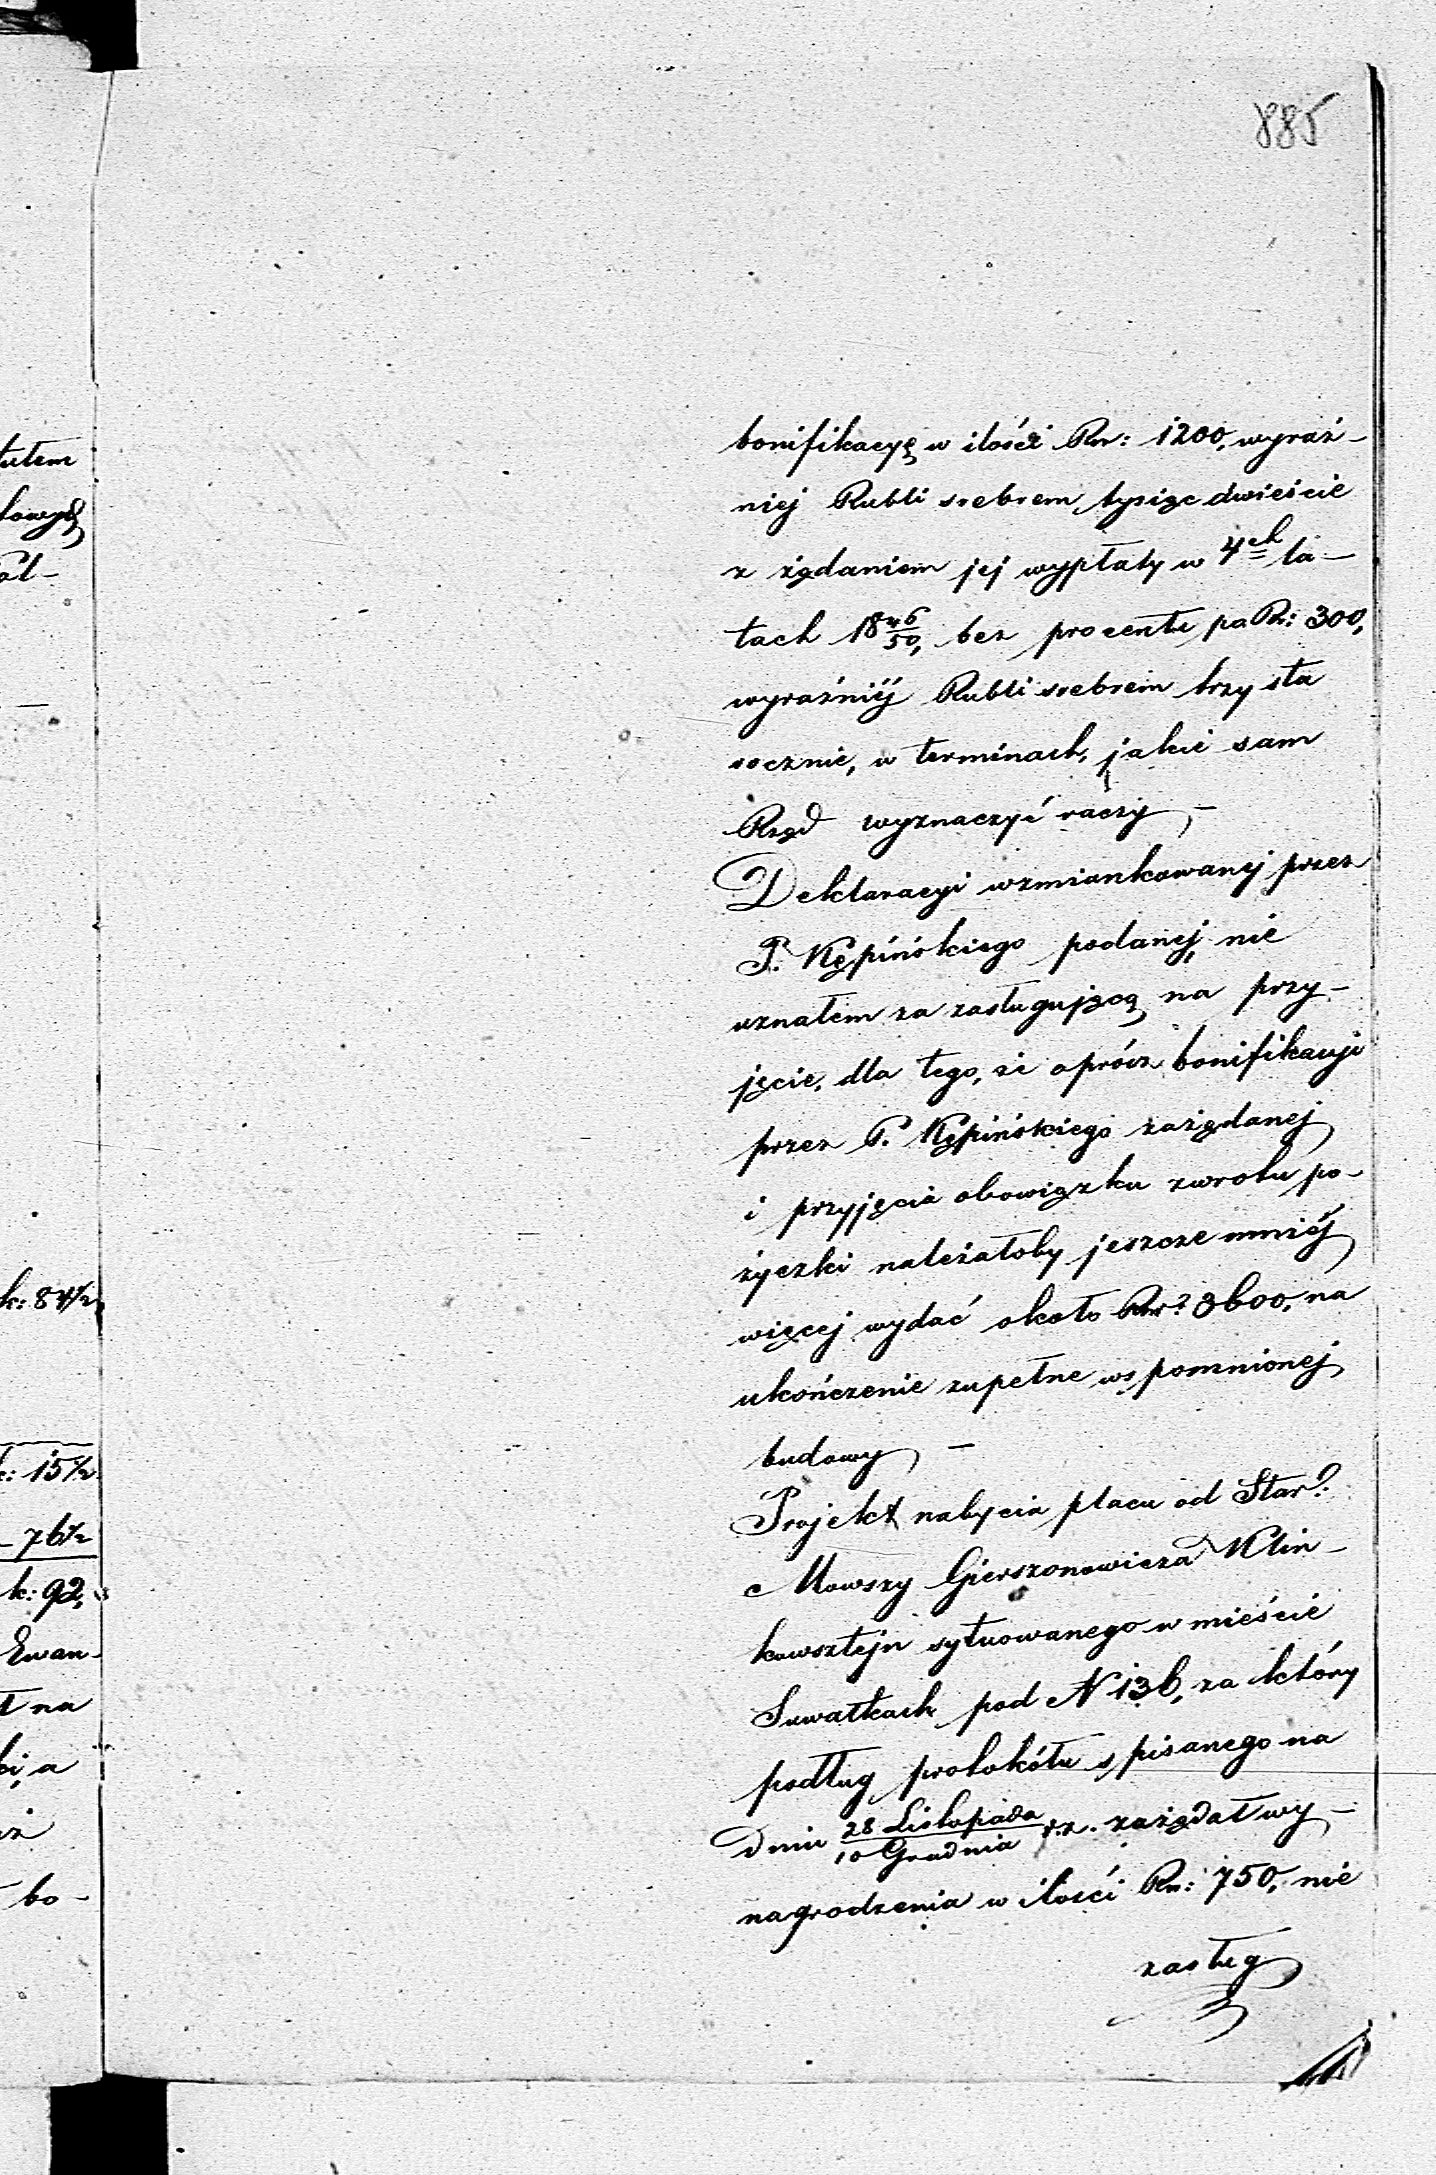 885
bonifikacyę w ilości Rsr: 1200, wyraź-
niej Rubli srebrem tysiąc dwieście
z żądaniem jej wypłaty w 4ch la-
tach 18 46/50, bez procentu po Rs: 300,
wyraźniéj Rubli srebrem trzysta
rocznie, w terminach, jakie sam
Rząd wyznaczyć raczy, –
Deklaracyi wzmiankowanej przez
P. Kępińskiego podanej, nie
uznałem za zasługującą na przy-
jęcie, dla tego, że oprócz bonifikacyi
przez P. Kępińskiego zażądanej
i przyjęcia obowiązku zwrotu po-
życzki należałoby jeszcze mniéj
więcej wydać około Rsr: 3600, na
ukończenie zupełne wspomnionej
budowy –
Projekt nabycia placu od Star:
Mowszy Gierszonowicza Klin-
kowsztejn sytuowanego w mieście
Suwałkach pod N 136, za który
podług protokółu spisanego na
dniu 28 Listopada/10 Grudnia r.z. zażądał wy-
nagrodzenia w ilości Rs: 750, nie
zasług
tułem
k: 84½
k: 15½
- 76½
k: 92,
Ewan-
ł na
bo-